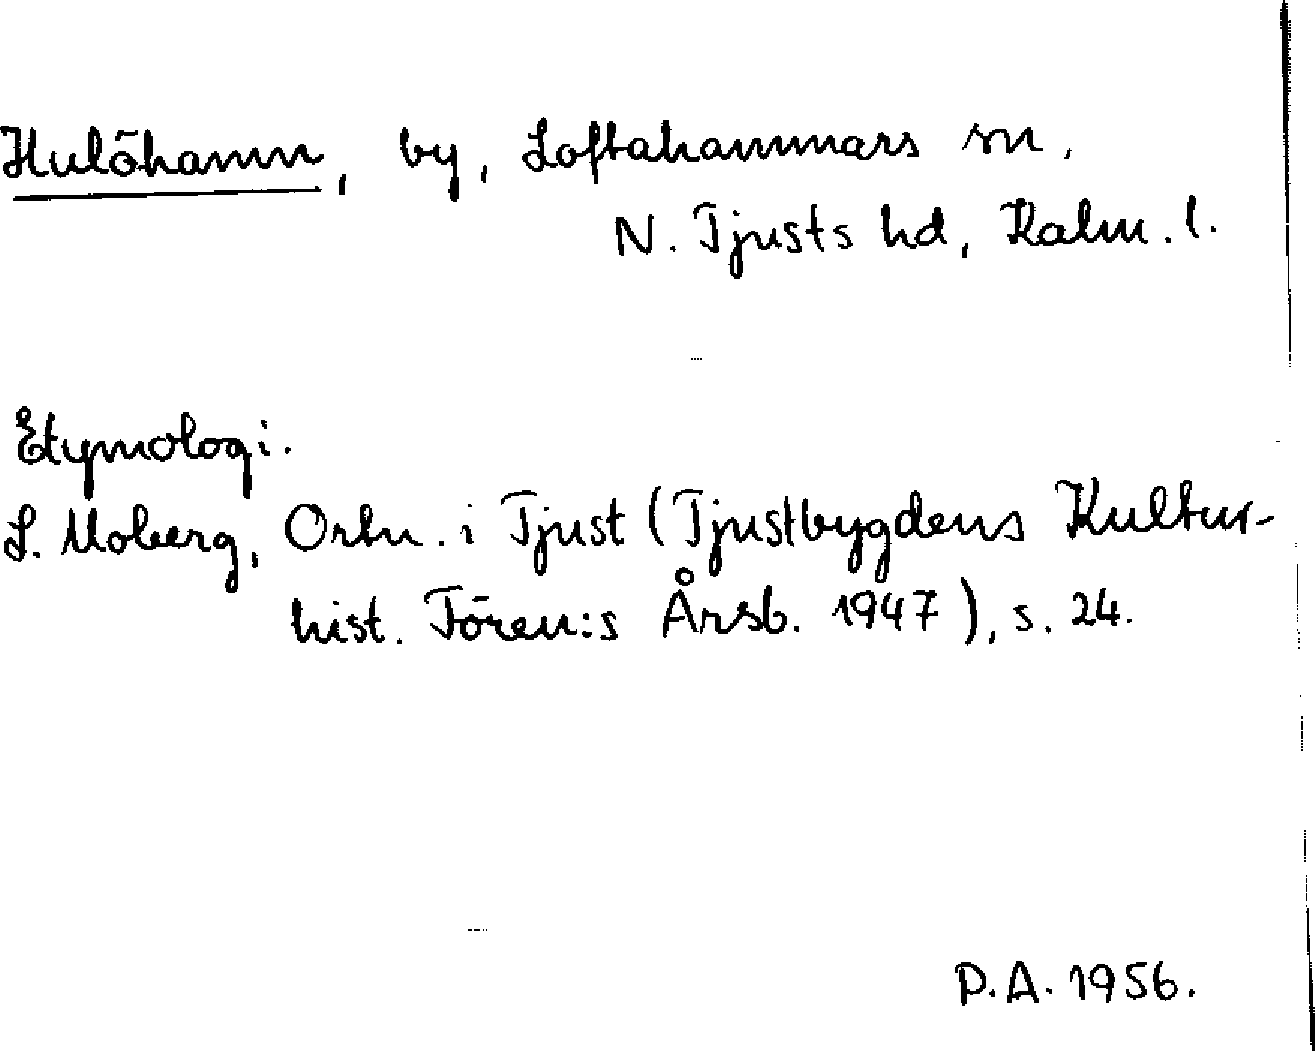 Hulöhamn, by, Loftahammars sn,
N. Tjusts hd, Kalm. l.
Etymologi.
L. Moberg, Ortn. i Tjust (Tjustbygdens Kultur-
hist. Fören:s Årsb. 1947), s. 24.
P.A. 1956.